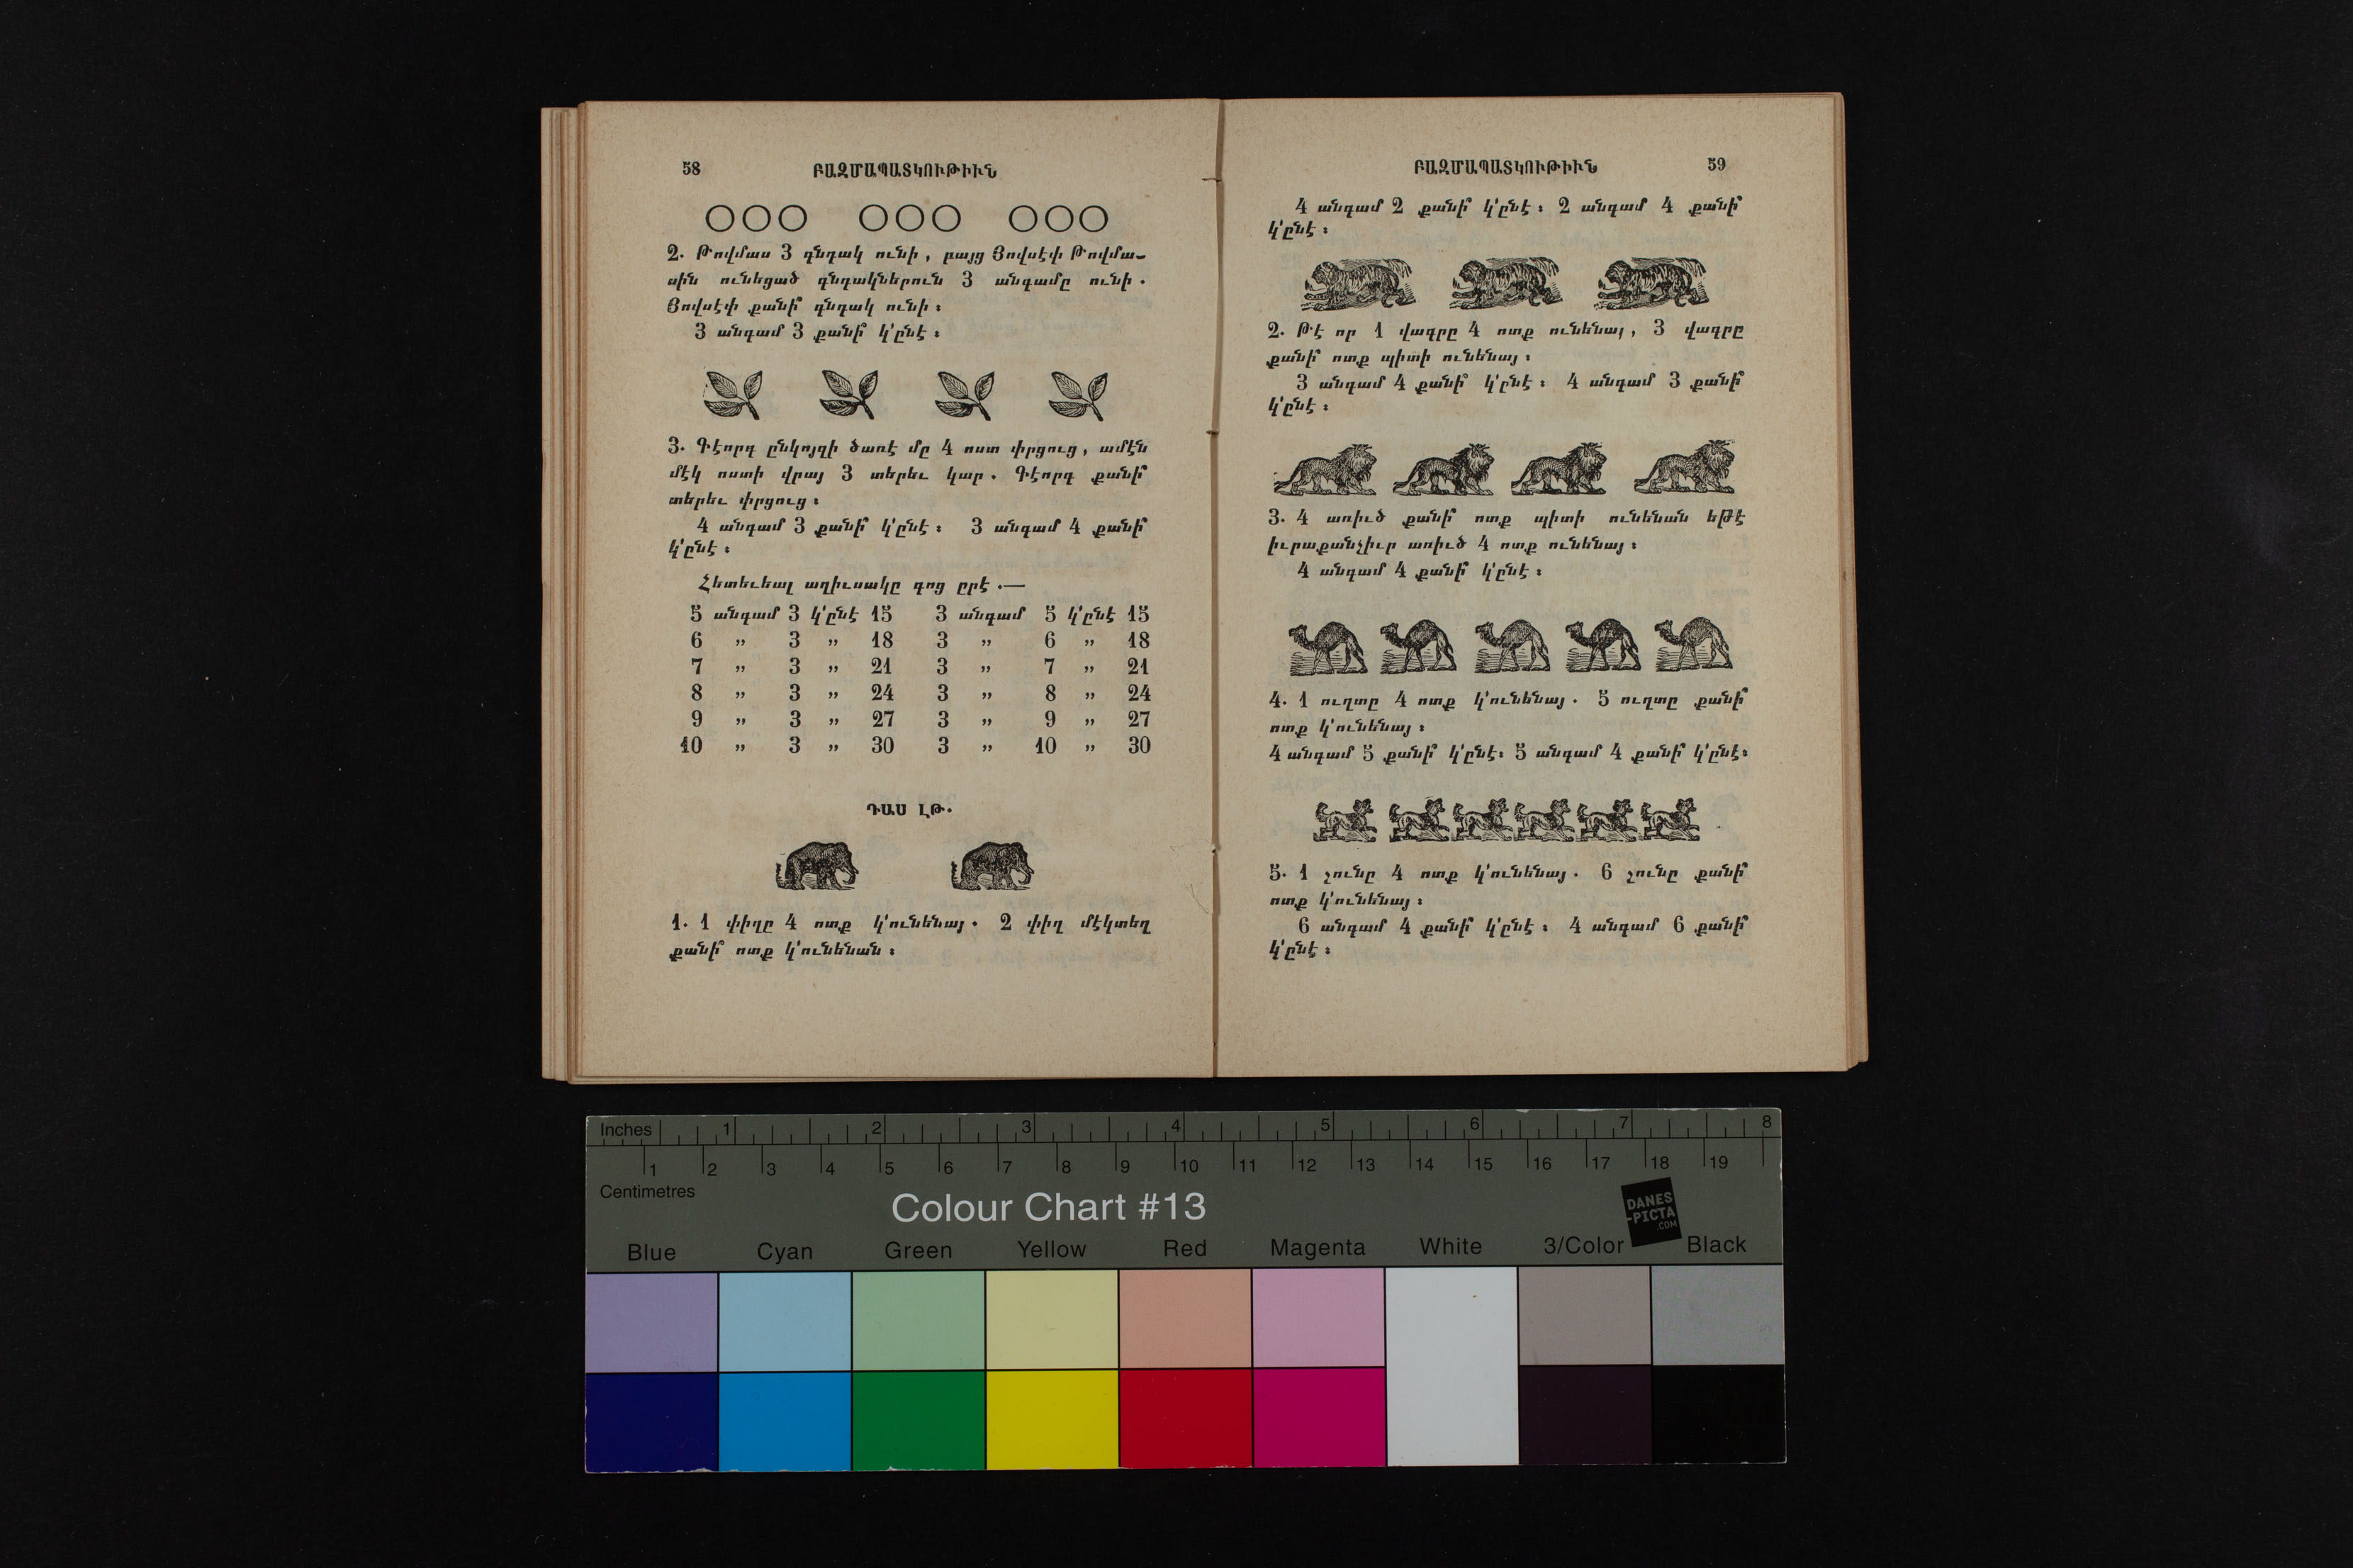 58 ԲԱԶՄԱՊԱՏԿՈՒԹԻՒՆ
2. Թովմաս 3 գնդակ ունի, բայց Յովսէփ Թովմա-
սին ունեցած գնդակներուն 3 անգամը ունի.
Յովսէփ քանի՞ գնդակ ունի։
3 անգամ 3 քանի՞ կ'ընէ։
3. Գէորգ ընկոյզի ծառէ մը 4 ոստ փրցուց, ամէն
մէկ ոստի վրայ 3 տերեւ կար. Գէորգ քանի՞
տերեւ փրցուց։
4 անգամ 3 քանի՞ կ'ընէ։ 3 անգամ 4 քանի՞
կ'ընէ։
Հետեւեալ աղիւսակը գոց ըրէ.—
5 անգամ 3 կ'ընէ 15 3 անգամ 5 կ'ընէ 15
6 „ 3 „ 18 3 „ 6 „ 18
7 „ 3 „ 21 3 „ 7 „ 21
8 „ 3 „ 24 3 „ 8 „ 24
9 „ 3 „ 27 3 „ 9 „ 27
10 „ 3 „ 30 3 „ 10 „ 30
ԴԱՍ ԼԹ.
1. 1 փիղը 4 ոտք կ'ունենայ. 2 փիղ մէկտեղ
քանի՞ ոտք կ'ունենան։
ԲԱԶՄԱՊԱՏԿՈՒԹԻՒՆ 59
4 անգամ 2 քանի՞ կ'ընէ։ 2 անգամ 4 քանի՞
կ'ընէ։
2. Թէ որ 1 վագրը 4 ոտք ունենայ, 3 վագրը
քանի՞ ոտք պիտի ունենայ։
3 անգամ 4 քանի՞ կ'ընէ։ 4 անգամ 3 քանի՞
կ'ընէ։
3. 4 առիւծ քանի՞ ոտք պիտի ունենան եթէ
իւրաքանչիւր առիւծ 4 ոտք ունենայ։
4 անգամ 4 քանի՞ կ'ընէ։
4. 1 ուղտը 4 ոտք կ'ունենայ. 5 ուղտը քանի՞
ոտք կ'ունենայ։
4 անգամ 5 քանի՞ կ'ընէ։ 5 անգամ 4 քանի՞ կ'ընէ։
5. 1 շունը 4 ոտք կ'ունենայ. 6 շունը քանի՞
ոտք կ'ունենայ։
6 անգամ 4 քանի՞ կ'ընէ։ 4 անգամ 6 քանի՞
կ'ընէ։
Inches 1 2 3 4 5 6 7 8
1 2 3 4 5 6 7 8 9 10 11 12 13 14 15 16 17 18 19
Centimetres
Colour Chart #13
DANES
-PICTA
.COM
Blue Cyan Green Yellow Red Magenta White 3/Color Black